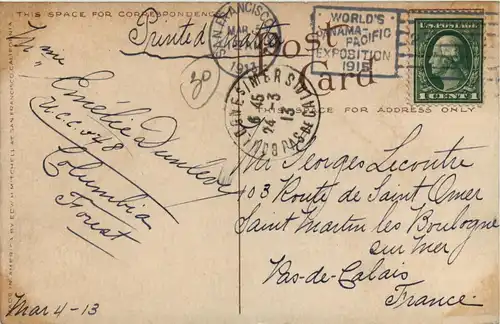 THIS SPACE FOR CORRESPONDENCE
Printed Matter
SAN FRANCISCO
MAR
1913
WORLD'S
PANAMA-PACIFIC
EXPOSITION
1915
U.S. POSTAGE
1 CENT 1
Post
Card
THIS SPACE FOR ADDRESS ONLY
30
16 45
24-3
13
PAS-DE-CALAIS
Emélie Dunlevy
U.C.C. 548
Columbia
Forest
Mar 4-13
Mr Georges Lecoutre
103 Route de Saint Omer
Saint Martin les Boulogne
sur Mer
Pas-de-Calais
France.
MADE IN AMERICA BY EDW. H. MITCHELL AT SAN FRANCISCO, CALIFORNIA